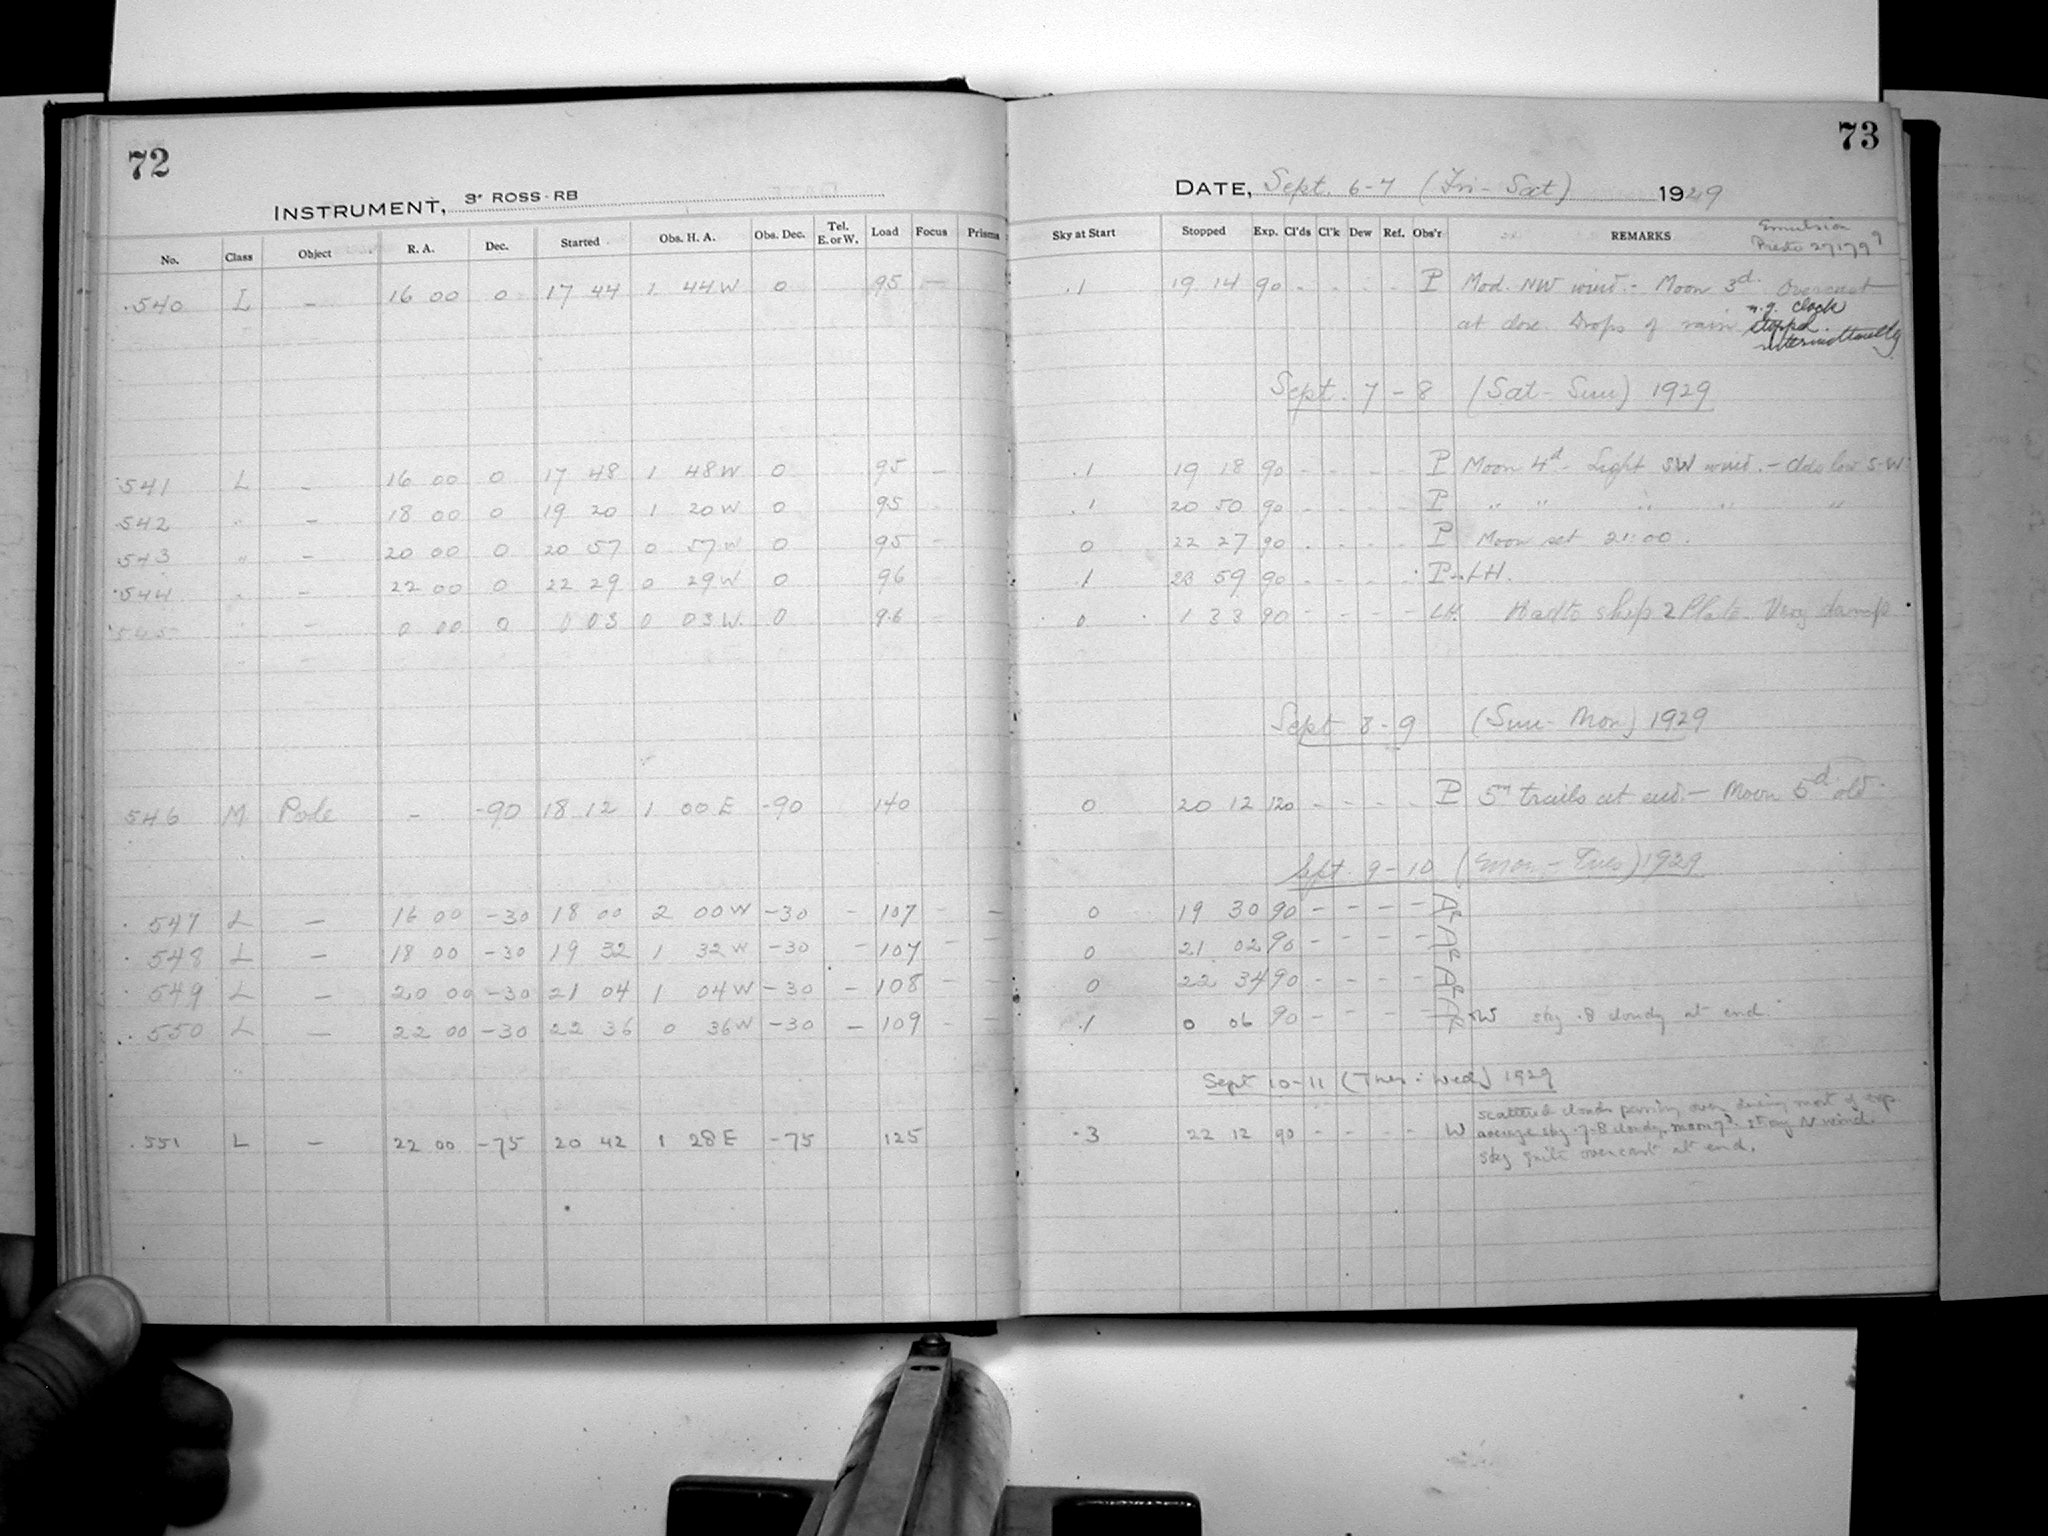 72
INSTRUMENT, 3" ROSS-RB
No. Class Object R. A. Dec. Started Obs. H. A. Obs. Dec. Tel. E. or W. Load Focus Prisms
540 L – 16 00 0 17 44 1 44 W 0 95 –
541 L – 16 00 0 17 48 1 48 W 0 95 –
542 " – 18 00 0 19 20 1 20 W 0 95
543 " – 20 00 0 20 57 0 57 W 0 95 –
544 " – 22 00 0 22 29 0 29 W 0 96
545 " – 0 00 0 0 03 0 03 W 0 96
546 M Pole – -90 18 12 1 00 E -90 140
547 L – 16 00 -30 18 00 2 00 W -30 – 107 – –
548 L – 18 00 -30 19 32 1 32 W -30 – 107 – –
549 L – 20 00 -30 21 04 1 04 W -30 – 108 – –
550 L – 22 00 -30 22 36 0 36 W -30 – 109 – –
551 L – 22 00 -75 20 42 1 28 E -75 125
73
DATE, Sept. 6-7 (Fri-Sat) 1929
Sky at Start Stopped Exp. Cl'ds Cl'k Dew Ref. Obs'r REMARKS
Emulsion
.1 19 14 90 - - - - P Mod. NW wind. - Moon 3d. Overcast
at close. Drops of rain n.g. clock
stopped
intermittently
Sept. 7-8 (Sat-Sun) 1929
.1 19 18 90 - - - - P Moon 4d - Light SW wind. - Clds low S-W.
.1 20 50 90 - - - - P " " " " "
0 22 27 90 - - - - P Moon set 21:00.
.1 23 59 90 - - - - P-LH.
0 1 33 90 - - - - LH. Very damp
Sept 8-9 (Sun-Mon) 1929
0 20 12 120 - - - - P 5m trails at end. - Moon 5d old.
Sept. 9-10 (Mon-Tues) 1929
0 19 30 90 - - - - AR
0 21 02 90 - - - - AR
0 22 34 90 - - - - AR
.1 0 06 90 - - - - AR-W sky .8 cloudy at end.
Sept 10-11 (Tues-Wed) 1929
scattered clouds passing over during most of exp.
.3 22 12 90 - - - - W average sky .7-.8 cloudy, moon 7d. strong N wind.
sky quite overcast at end.